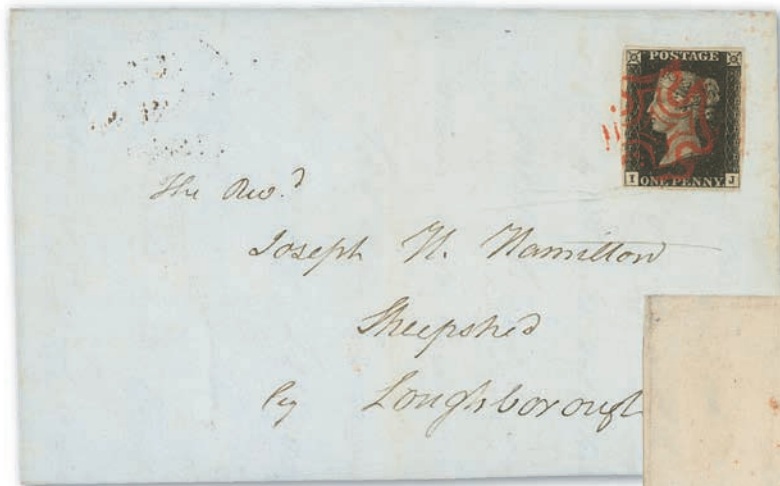 POSTAGE
I ONE PENNY J
The Revd
Joseph H. Hamilton
Sheepshed
Loughborough